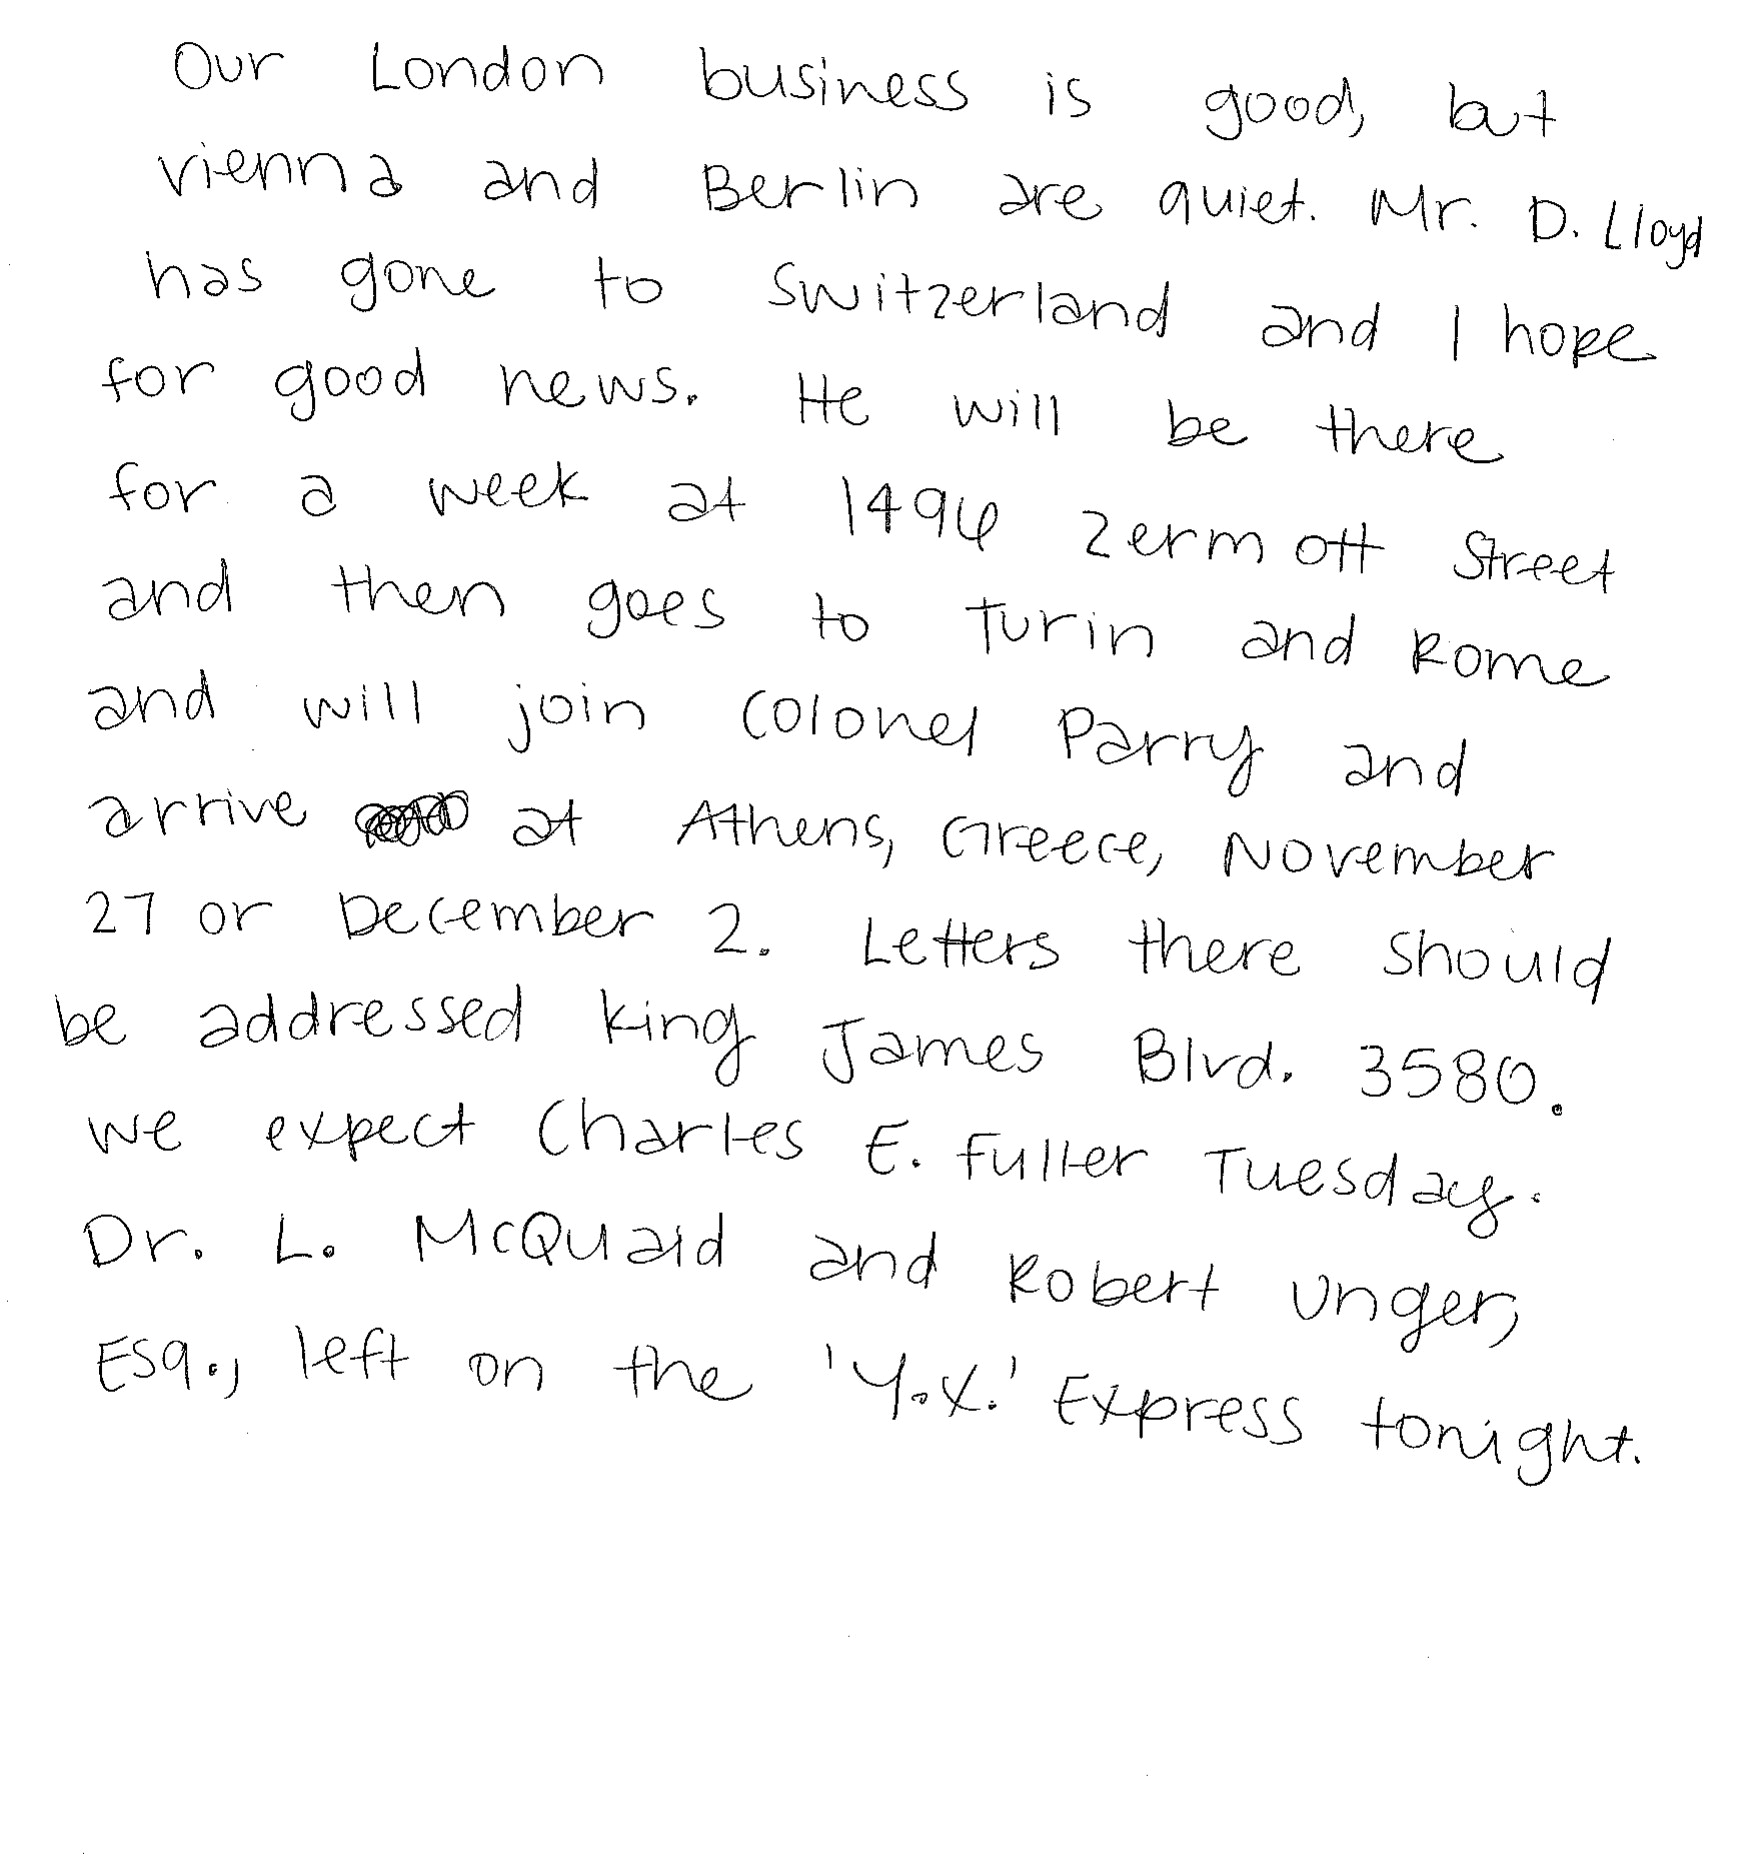 Our London business is good, but
vienna and Berlin are quiet. Mr. D. Lloyd
has gone to Switzerland and I hope
for good news. He will be there
for a week at 1496 Zermott Street
and then goes to Turin and Rome
and will join Colonel Parry and
arrive at Athens, Greece, November
27 or December 2. Letters there should
be addressed King James Blvd. 3580.
we expect Charles E. Fuller Tuesday.
Dr. L. McQuaid and Robert Unger,
Esq., left on the 'Y.X.' Express tonight.